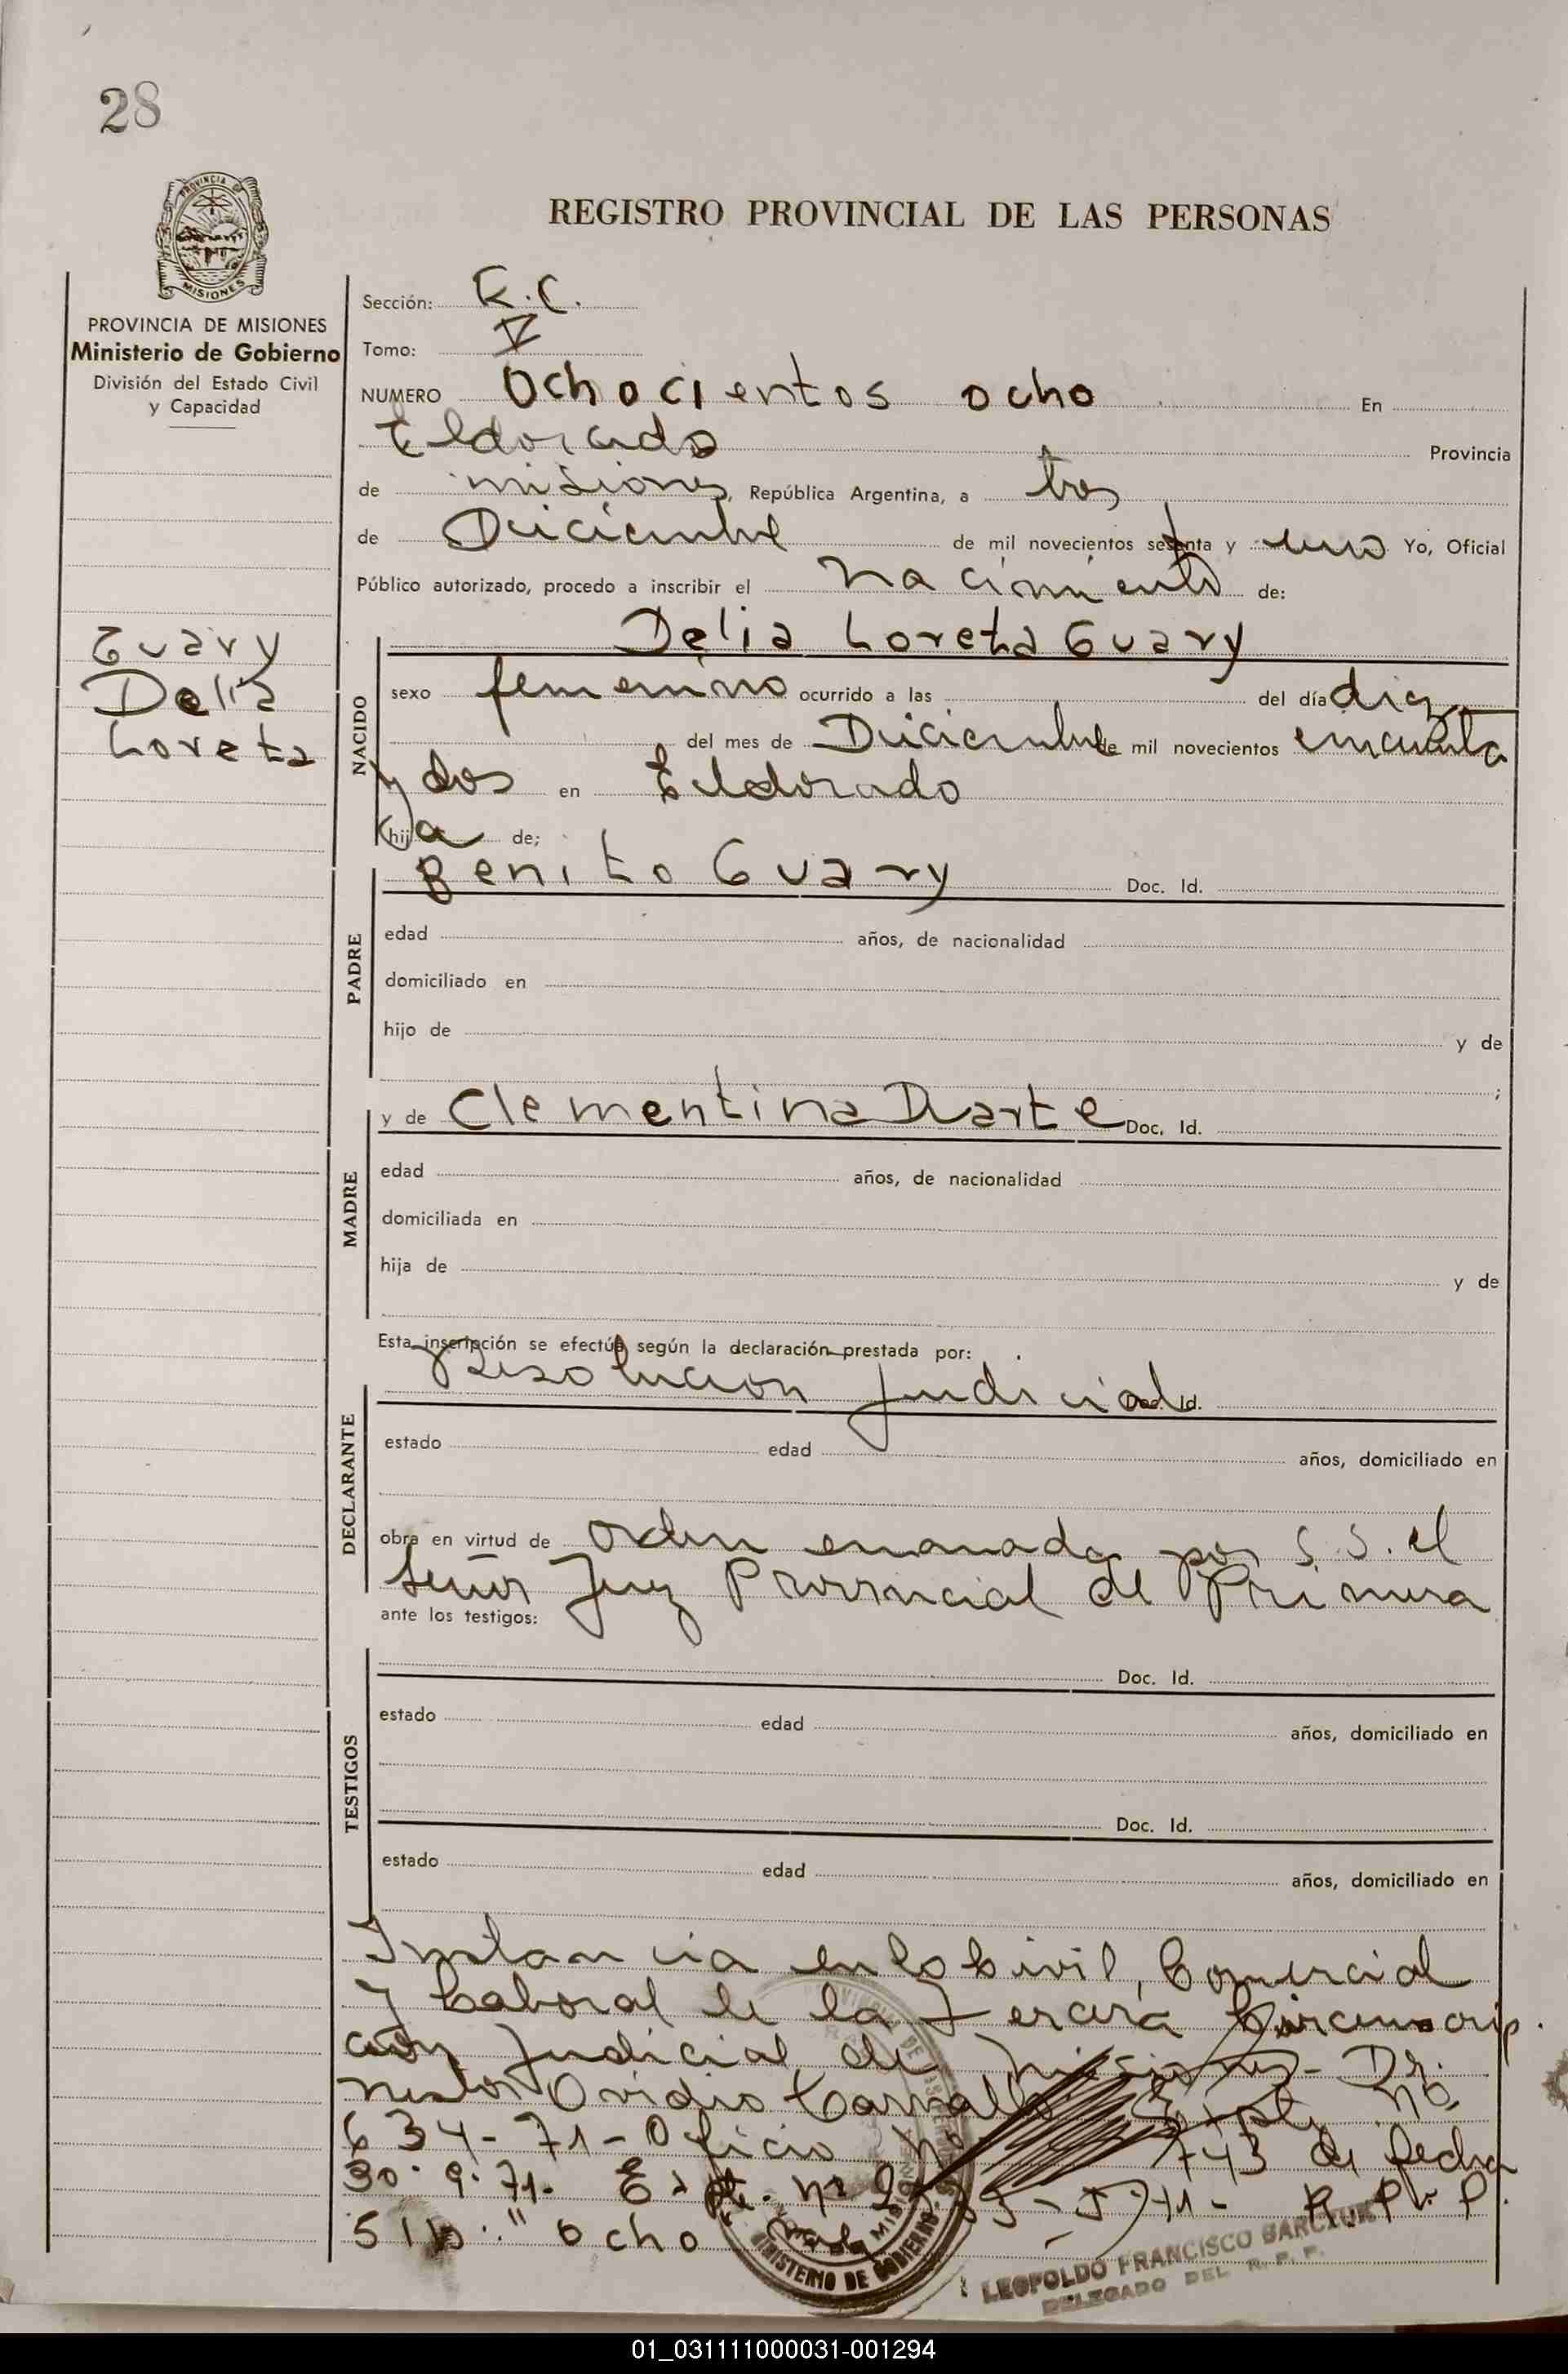 28
REGISTRO PROVINCIAL DE LAS PERSONAS
PROVINCIA DE
MISIONES
PROVINCIA DE MISIONES
Ministerio de Gobierno
División del Estado Civil
y Capacidad
Guary
Delia
Loreta
Sección: E.C.
Tomo: V
NUMERO Ochocientos ocho En
Eldorado Provincia
de misiones, República Argentina, a tres
de Diciembre de mil novecientos setenta y uno Yo, Oficial
Público autorizado, procedo a inscribir el nacimiento de:
NACIDO
Delia Loreta Guary
sexo femenino ocurrido a las del día diez
del mes de Diciembre de mil novecientos cincuenta
y dos en Eldorado
hija de;
PADRE
Benito Guary Doc. Id.
edad años, de nacionalidad
domiciliado en
hijo de y de
;
MADRE
y de Clementina Duarte Doc. Id.
edad años, de nacionalidad
domiciliada en
hija de y de
Esta inscripción se efectúa según la declaración prestada por:
DECLARANTE
Resolucion Judicial Doc. Id.
estado edad años, domiciliado en
obra en virtud de Orden emanada por S.S. el
Señor Juez Provincial de Primera
ante los testigos:
TESTIGOS
Doc. Id.
estado edad años, domiciliado en
Doc. Id.
estado edad años, domiciliado en
Instancia en lo Civil, Comercial
y Laboral de la Tercera Circunscrip
ción Judicial de Misiones - Dr.
Nestor Ovidio Carvallo Expte Nº
634-71-Oficio Nº 743 de fecha
30-9-71- Expte. Nº 71- R.P.P.
ocho
MINISTERIO DE GOBIERNO
LEOPOLDO FRANCISCO
DELEGADO DEL R. P. P.
01_031111000031-001294